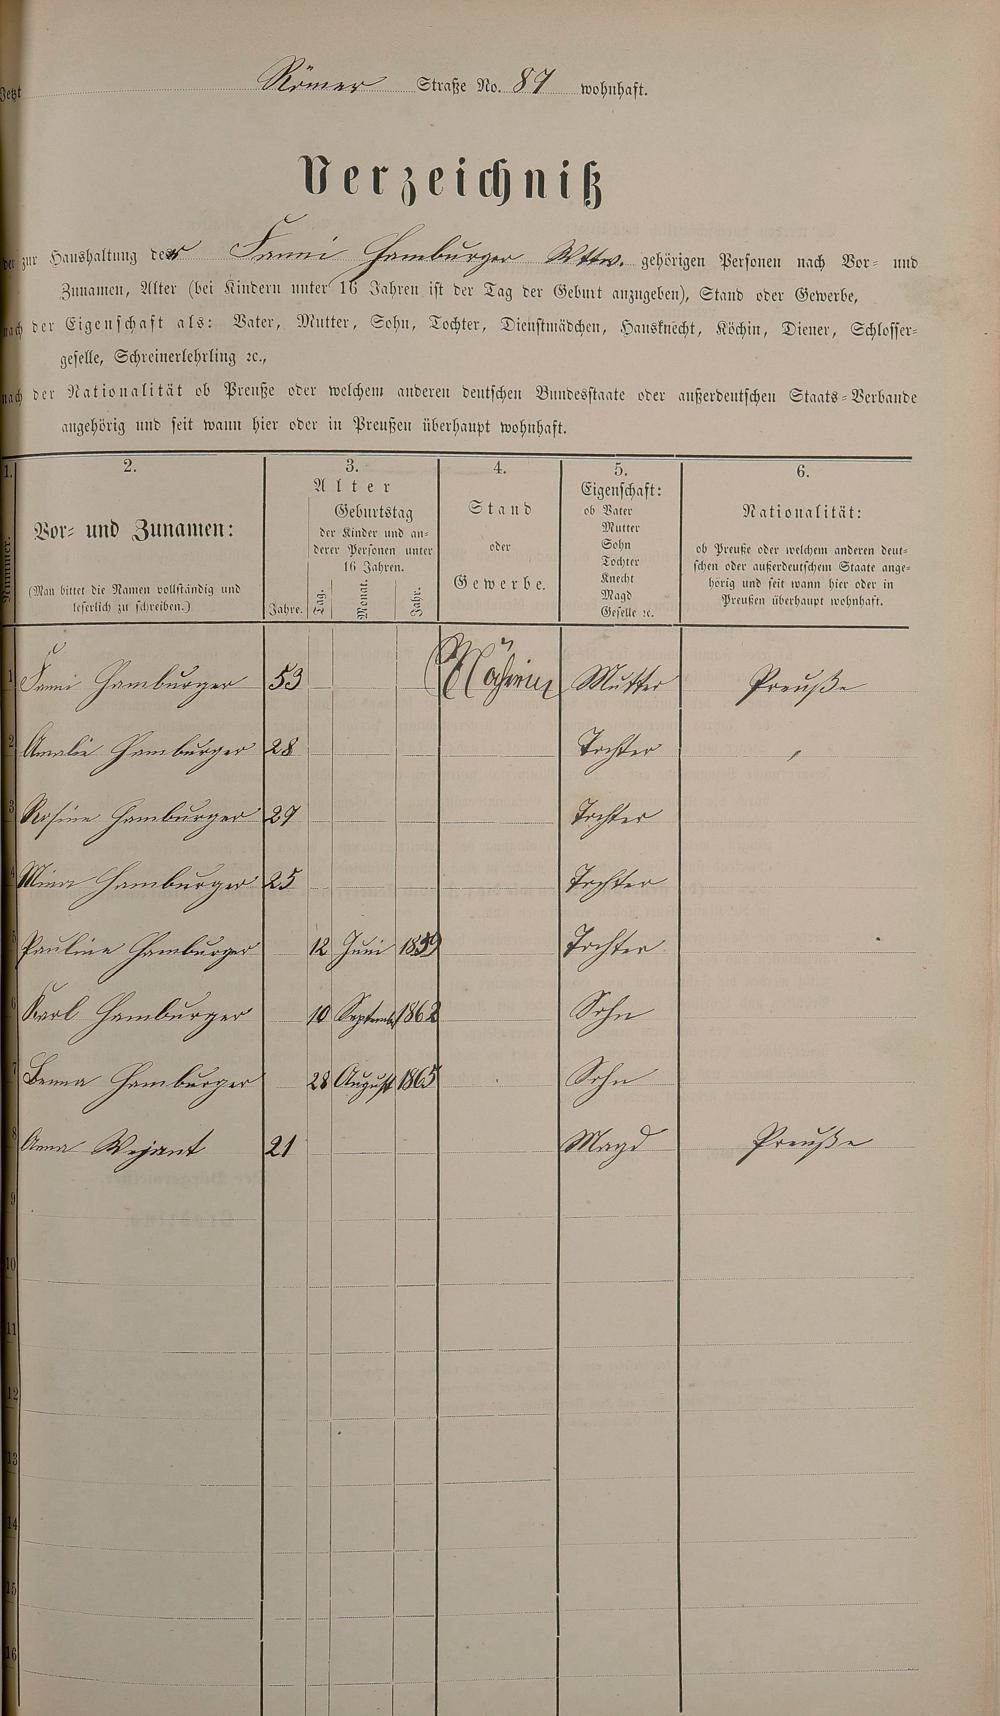 Jetzt Römer Straße No. 87 wohnhaft.
Verzeichniß
der zur Haushaltung der Fanni Hamburger Wttw. gehörigen Personen nach Vor- und
Zunamen, Alter (bei Kindern unter 16 Jahren ist der Tag der Geburt anzugeben), Stand oder Gewerbe,
nach der Eigenschaft als: Vater, Mutter, Sohn, Tochter, Dienstmädchen, Hausknecht, Köchin, Diener, Schlosser-
geselle, Schreinerlehrling ꝛc.,
nach der Nationalität ob Preuße oder welchem anderen deutschen Bundesstaate oder außerdeutschen Staats-Verbande
angehörig und seit wann hier oder in Preußen überhaupt wohnhaft.
1. 2. 3. 4. 5. 6.
Nummer.
Vor- und Zunamen:
(Man bittet die Namen vollständig und
leserlich zu schreiben.)
Alter
Jahre.
Geburtstag
der Kinder und an-
derer Personen unter
16 Jahren.
Tag. Monat. Jahr.
Stand
oder
Gewerbe.
Eigenschaft:
ob Vater
Mutter
Sohn
Tochter
Knecht
Magd
Geselle ꝛc.
Nationalität:
ob Preuße oder welchem anderen deut-
schen oder außerdeutschem Staate ange-
hörig und seit wann hier oder in
Preußen überhaupt wohnhaft.
1 Fanni Hamburger 53 Näherin Mutter Preuße
2 Amalie Hamburger 28 Tochter "
3 Rosine Hamburger 27 Tochter
4 Mina Hamburger 25 Tochter
5 Pauline Hamburger 12 Juni 1859 Tochter
6 Karl Hamburger 10 September 1862 Sohn
7 Benna Hamburger 28 August 1865 Sohn
8 Anna 21 Magd Preuße
9
10
11
12
13
14
15
16